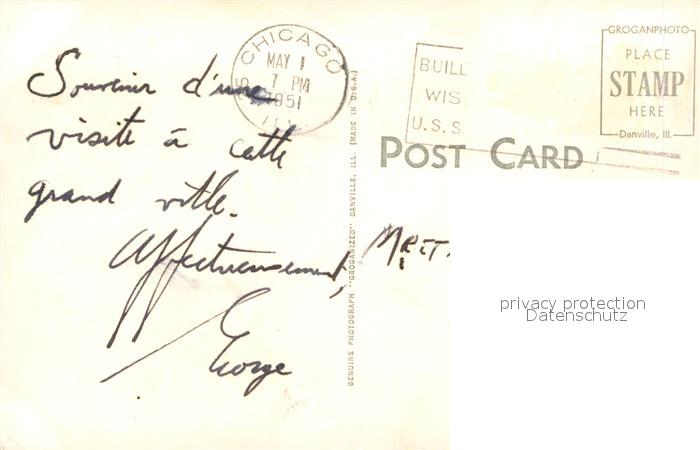 Souvenir d'une
visite à cette
grand ville.
Affectueusement,
George
CHICAGO
MAY 1
7 PM
1951
ILL
BUIL
WIS
U.S.S
GROGANPHOTO
PLACE
STAMP
HERE
Danville, Ill.
POST CARD
GENUINE PHOTOGRAPH "GROGANIZED" DANVILLE, ILL. (MADE IN U.S.A.)
privacy protection
Datenschutz